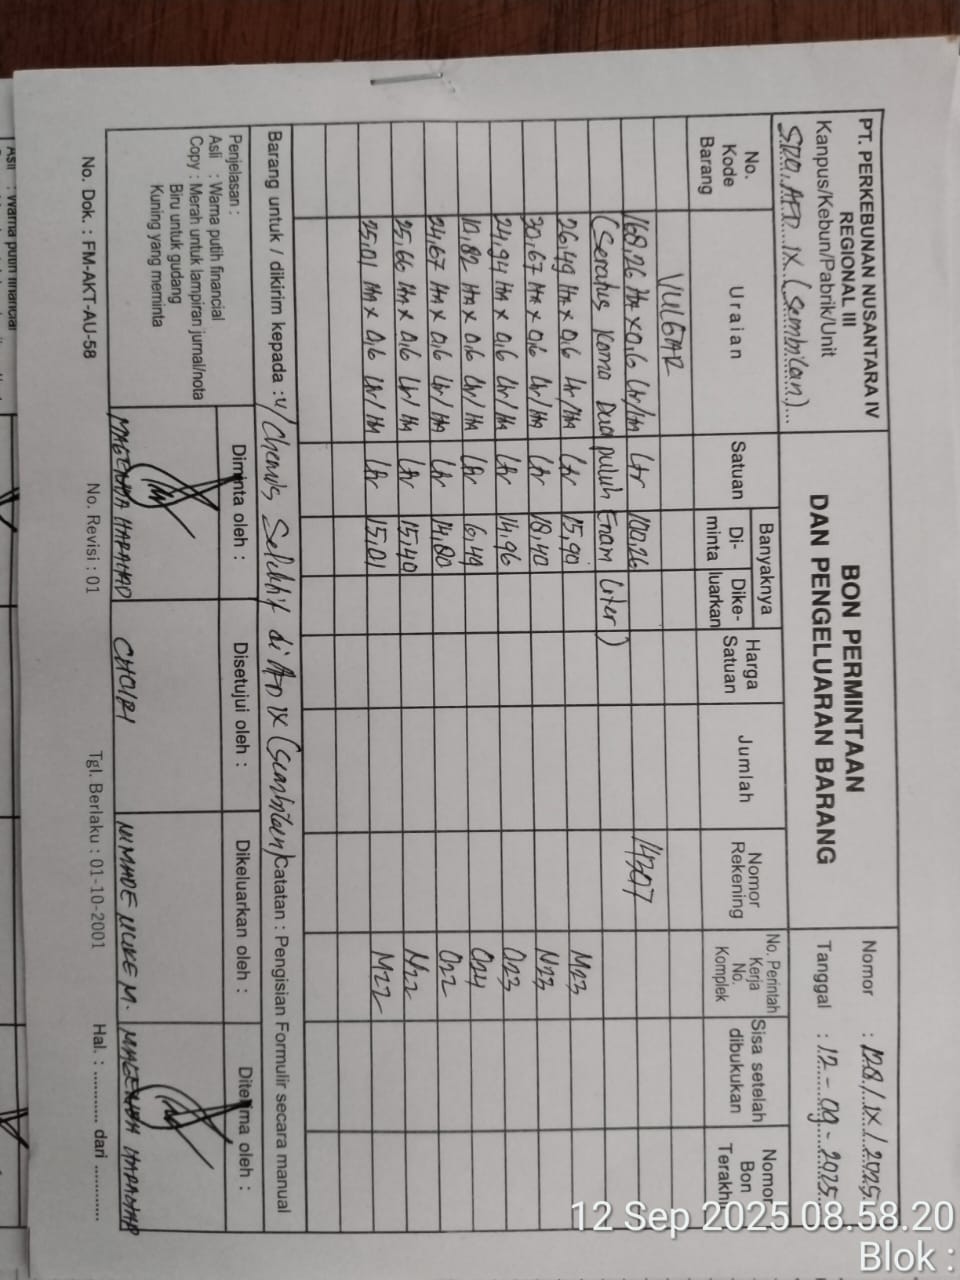 PT. PERKEBUNAN NUSANTARA IV
REGIONAL III
Kanpus/Kebun/Pabrik/Unit
SRO. AFD IX (Sembilan)
BON PERMINTAAN
DAN PENGELUARAN BARANG
Nomor : 128/IX/2025
Tanggal : 12-09-2025
No. Kode Barang Uraian Satuan Banyaknya Di-minta Dike-luarkan Harga Satuan Jumlah Nomor Rekening No. Perintah Kerja No. Komplek Sisa setelah dibukukan Nomor Bon Terakhir
VULGAR
168,26 HA x 0,6 Ltr/HA Ltr 100,26 14307
(Seratus Koma Dua puluh Enam Liter)
26,49 HA x 0,6 Ltr/HA Ltr 15,90 M23
30,67 HA x 0,6 Ltr/HA Ltr 18,40 N23
24,94 HA x 0,6 Ltr/HA Ltr 14,96 O23
10,82 HA x 0,6 Ltr/HA Ltr 6,49 O24
24,67 HA x 0,6 Ltr/HA Ltr 14,80 O22
25,66 HA x 0,6 Ltr/HA Ltr 15,40 N22
25,01 HA x 0,6 Ltr/HA Ltr 15,01 M22
Barang untuk / dikirim kepada : u/ Chemis Selektif di AFD IX (sembilan) Catatan : Pengisian Formulir secara manual
Penjelasan :
Asli : Warna putih financial
Copy : Merah untuk lampiran jurnal/nota
Biru untuk gudang
Kuning yang meminta
Diminta oleh : Disetujui oleh : Dikeluarkan oleh : Diterima oleh :
MAGENDA HARAHAP CHOIRI NIMADE NUKE M. MAGENDA HARAHAP
No. Dok. : FM-AKT-AU-58 No. Revisi : 01 Tgl. Berlaku : 01-10-2001 Hal. : ........... dari ............
Asli : Warna putih financial
12 Sep 2025 08.58.20
Blok :